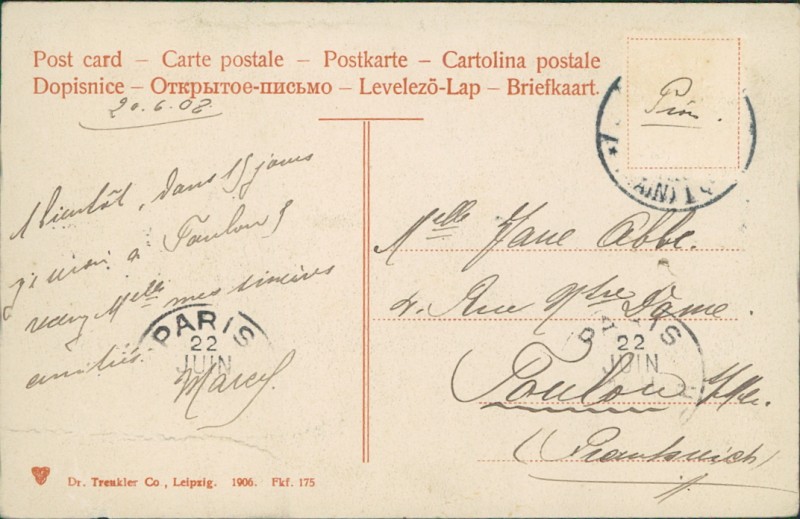 Post card – Carte postale – Postkarte – Cartolina postale
Dopisnice – Открытое-письмо – Levelező-Lap – Briefkaart.
20.6.08
A bientôt, dans 15 jours
j'irai à Toulon
recevez Melle mes sincères
amitiés.
Marcel
PARIS
22
JUIN
Melle Jane Abbe.
4. Rue Ntre Dame.
Toulon
(Frankreich)
22
JUIN
Dr. Trenkler Co., Leipzig. 1906. Fkf. 175